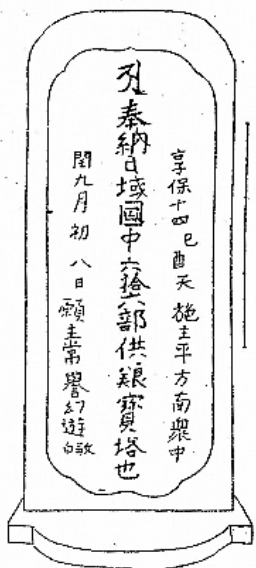 享保十四己酉天 施主平方南衆中
奉納日域國中六拾六部供寶塔也
閏九月初八日 願主常譽幻遊敬白